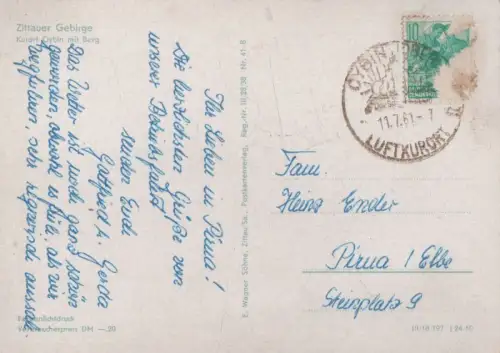 Zittauer Gebirge
Kurort Oybin mit Burg
Ihr Lieben in Pirna!
Die herzlichsten Grüße von
unserer Betriebsfahrt
senden Euch
Gottfried u. Gerda
Das Wetter ist noch ganz schön
geworden, obwohl es früh, als wir
wegfuhren, sehr regnerisch aussah.
Verbraucherpreis DM —,20
E. Wagner Söhne, Zittau/Sa., Postkartenverlag, Reg.-Nr. 10 28 38 Nr. 41-B
10
OYBIN
11.7.61-7
LUFTKURORT
Fam.
Heinz Ender
Pirna / Elbe
Steinplatz 9